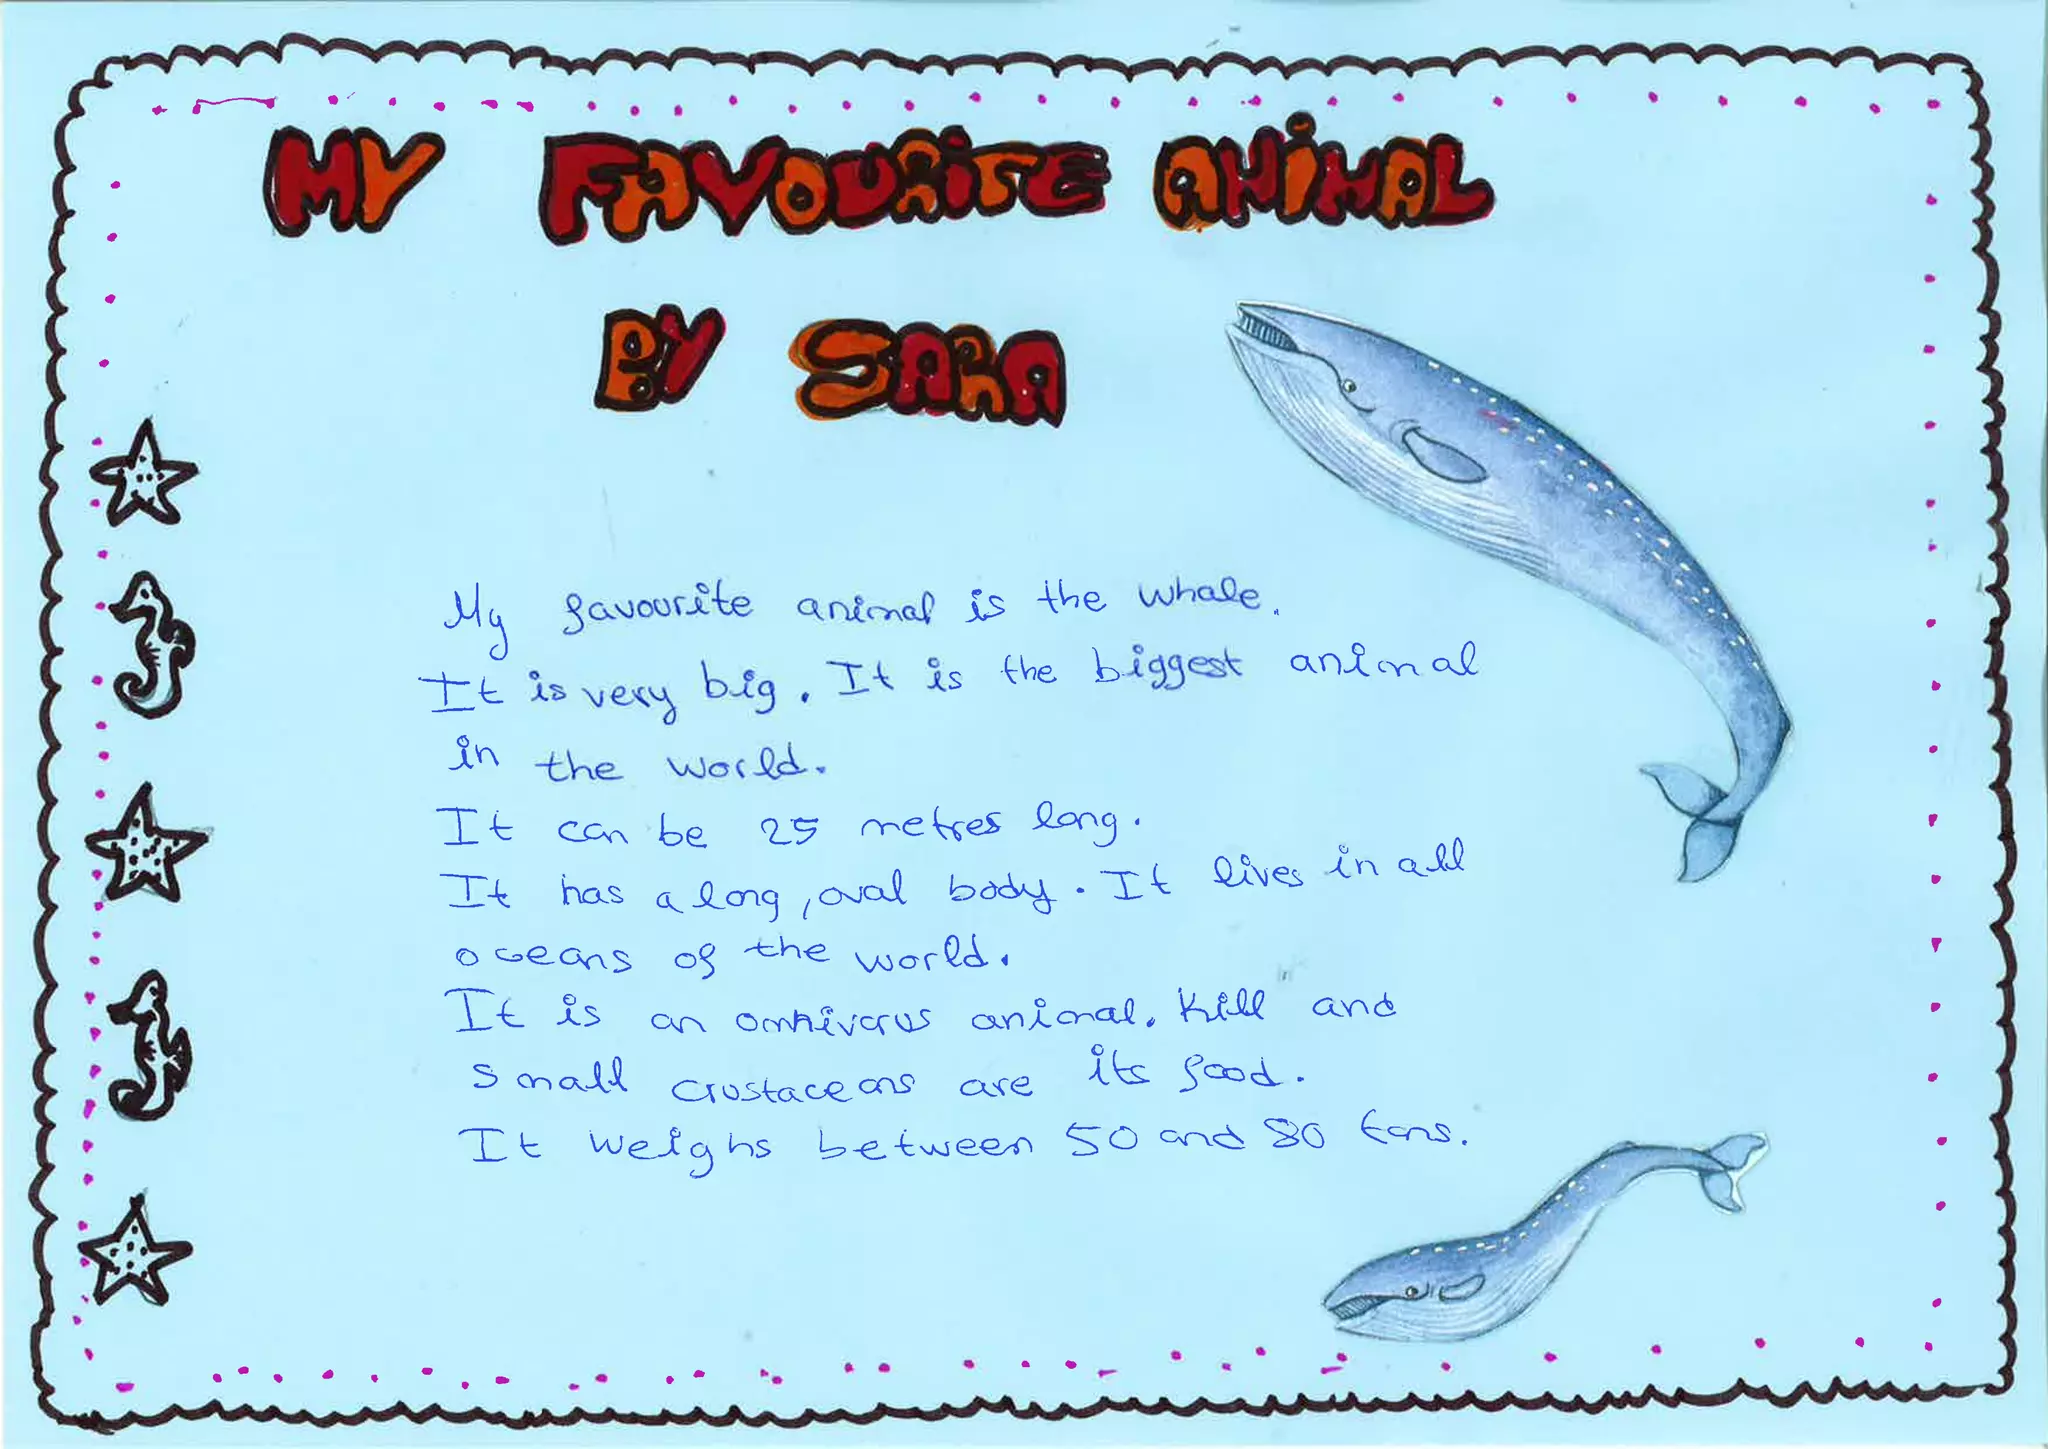 MY FAVOURITE ANIMAL
BY SARA
My favourite animal is the whale.
It is very big. It is the biggest animal
in the world.
It can be 25 metres long.
It has a long, oval body. It lives in all
oceans of the world.
It is an omnivorus animal. Krill and
small crustaceans are its food.
It weighs between 50 and 80 tons.